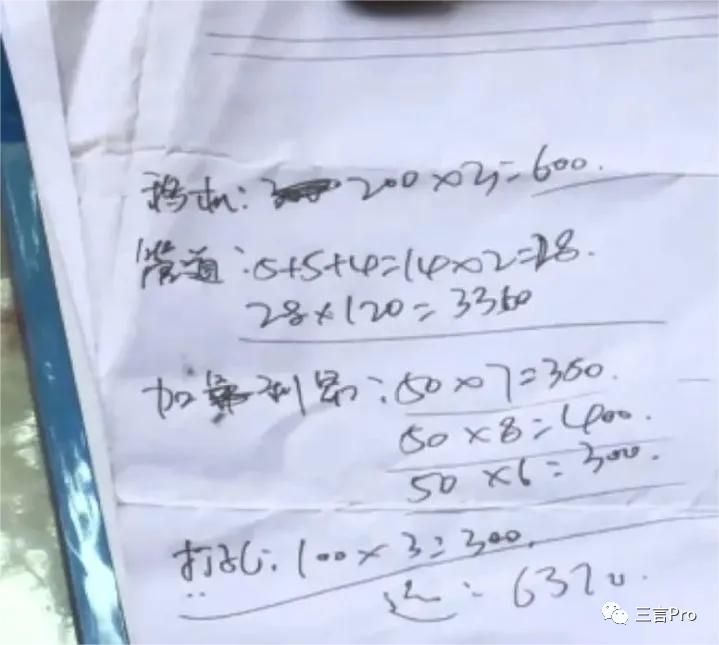 移机: 200×3=600.
管道: 5+5+4=14×2=28.
28×120=3360
加利昂: 50×7=350.
50×8=400.
50×6=300.
打孔: 100×3=300.
: 6370.
三言Pro